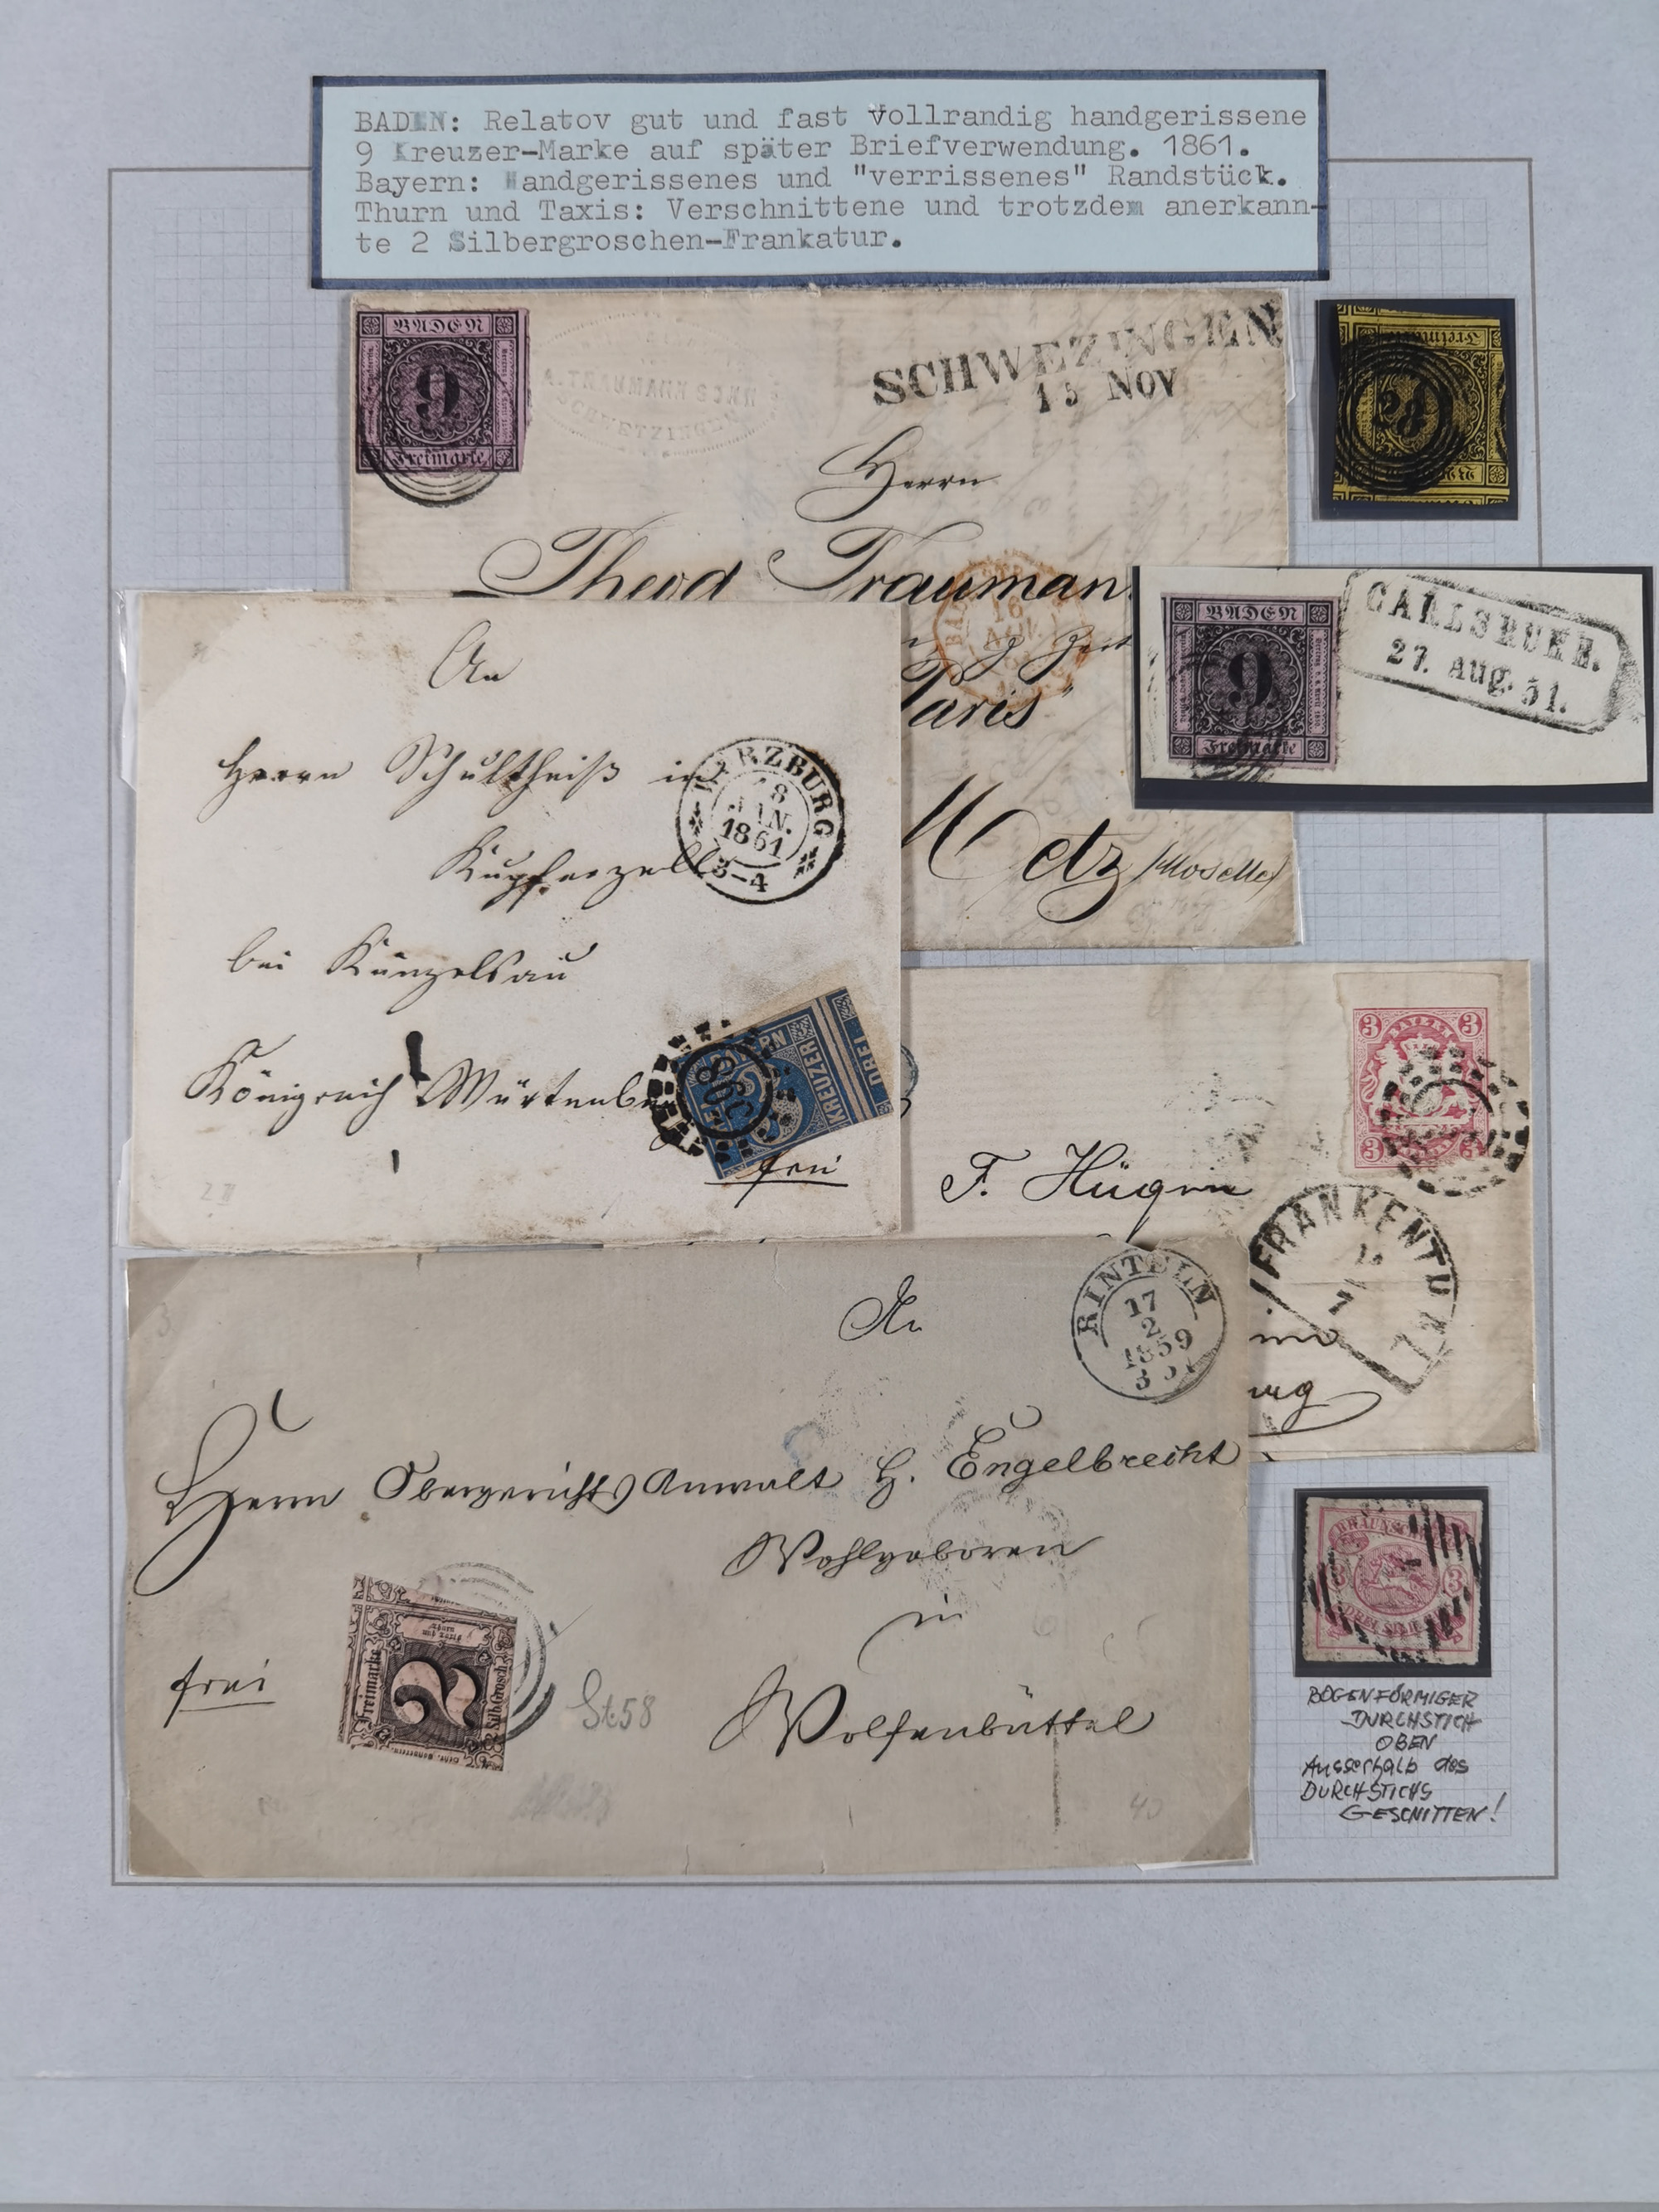 BADEN: Relatov gut und fast vollrandig handgerissene
9 Kreuzer-Marke auf später Briefverwendung. 1861.
Bayern: Handgerissenes und "verrissenes" Randstück.
Thurn und Taxis: Verschnittene und trotzdem anerkann-
te 2 Silbergroschen-Frankatur.
BADEN
9
Freimarke
A. TRAUMANN SOHN
SCHWETZINGEN
SCHWEZINGEN
15 NOV
Herrn
Theod Trauman
Paris"
Metz (Moselle)
Freimarke
BADEN
9
Freimarke
CARLSRUHE.
27. Aug. 51.
An
Herrn Schultheiß in
Kupferzell
bei Künzelsau
Königreich Würtenberg
frei
WÜRZBURG
18
JAN.
1861
3-4
BAYERN
KREUZER
DREI
3 3
BAYERN
3 3
F. Hügen
FRANKENTHAL
An
RINTELN
17
2
1859
Herrn Obergerichts Anwalt H. Engelbrecht
Wohlgeboren
in
Wolfenbüttel
frei
Freimarke
2
Silb.Grosch.
St 58
40
BRAUNSCHWEIG
3
BOGENFÖRMIGER
DURCHSTICH
OBEN
Ausserhalb des
DURCHSTICHS
GESCNITTEN!